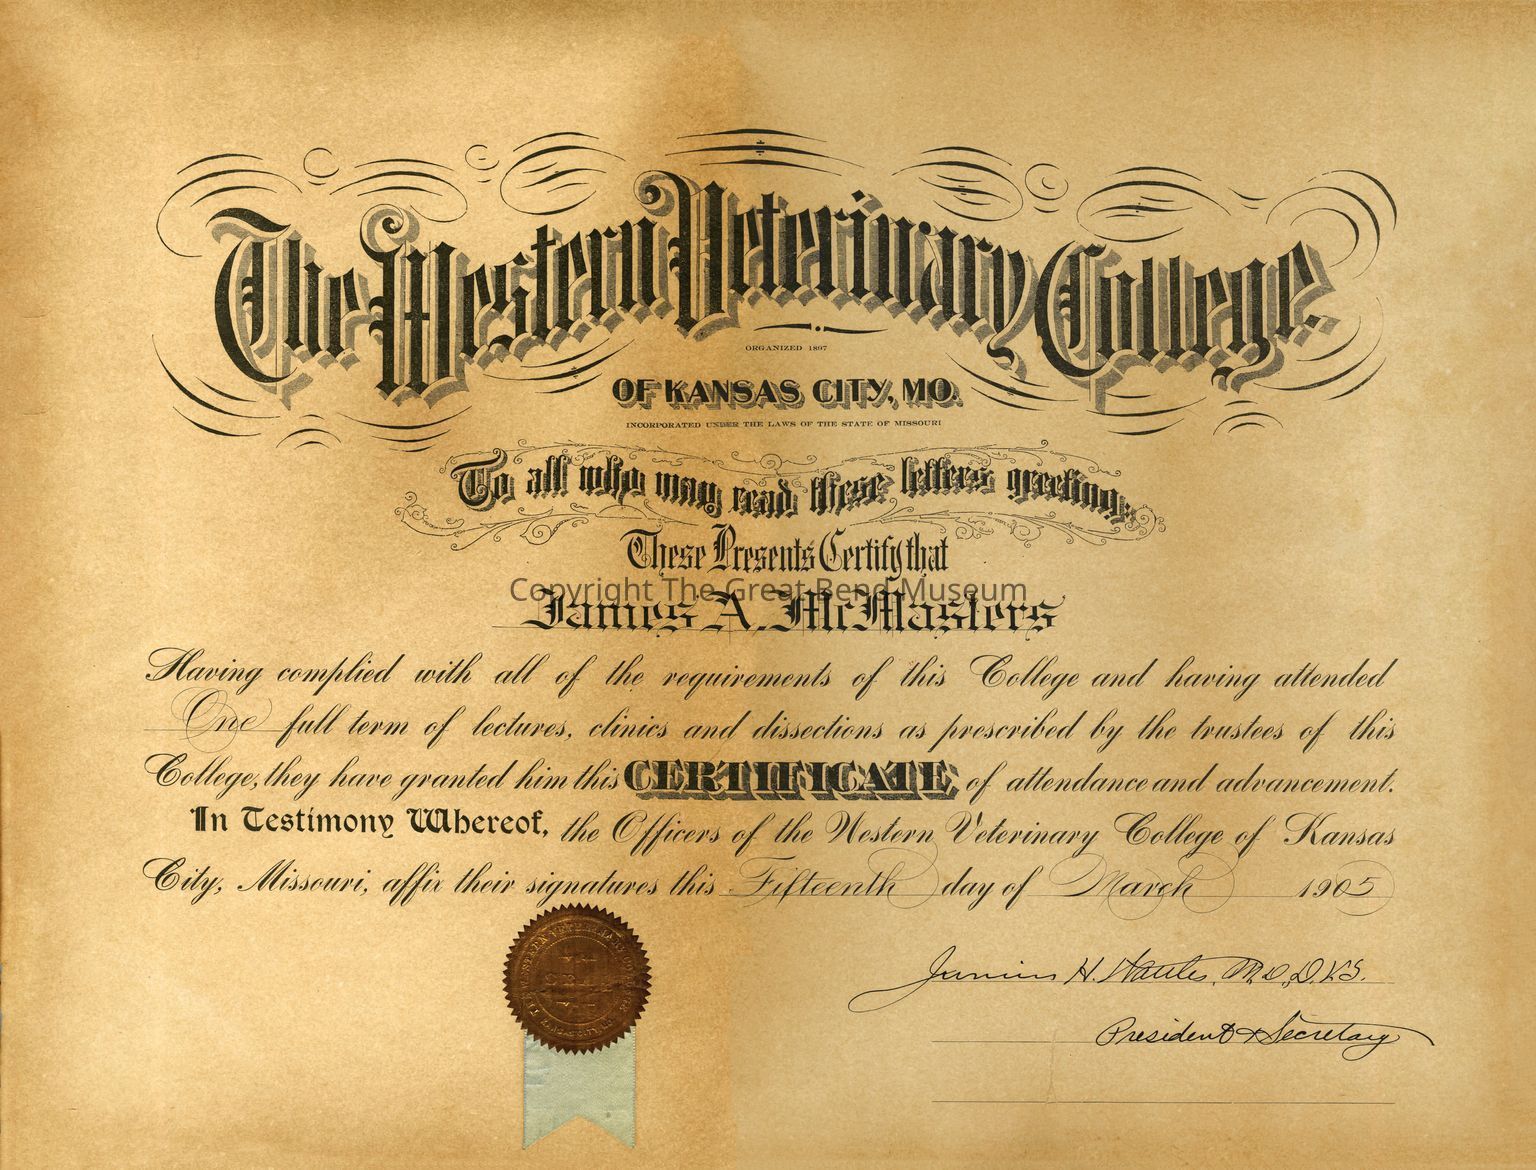 The Western Veterinary College
ORGANIZED 1897
OF KANSAS CITY, MO.
INCORPORATED UNDER THE LAWS OF THE STATE OF MISSOURI
To all who may read these letters greeting:
These Presents Certify that
Copyright The Great Bend Museum
James A. McMasters
Having complied with all of the requirements of this College and having attended
One full term of lectures, clinics and dissections as prescribed by the trustees of this
College, they have granted him this CERTIFICATE of attendance and advancement.
In Testimony Whereof, the Officers of the Western Veterinary College of Kansas
City, Missouri, affix their signatures this Fifteenth day of March 1905
Junius H. Wattles, M.D., D.V.S.
President & Secretary